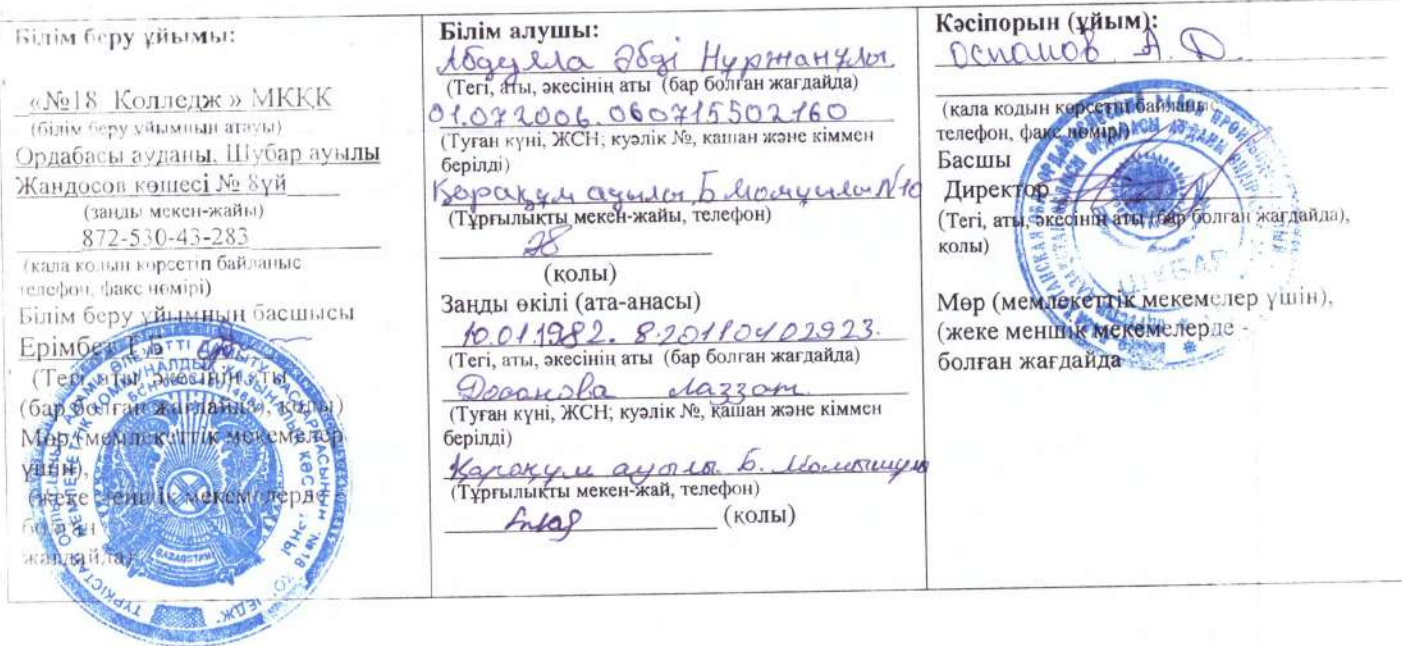 Білім беру ұйымы:
«№18 Колледж » МКҚК
(білім беру ұйымның атауы)
Ордабасы ауданы, Шубар ауылы
Жандосов көшесі № 8үй
(заңды мекен-жайы)
872-530-43-283
(қала кодын көрсетіп байланыс
телефон, факс нөмірі)
Білім беру ұйымның басшысы
Ерімбет
(Тегі, аты, әкесінің аты
(бар болған жағдайда), қолы)
Мөр (мемлекеттік мекемелер
үшін),
(жеке меншік мекемелерде -
болған
жағдайда)
Білім алушы:
Абдулла Әбді Нұржанұлы
(Тегі, аты, әкесінің аты (бар болған жағдайда)
01.07.2006. 060715502160
(Туған күні, ЖСН; куәлік №, қашан және кіммен
берілді)
Қарақұм ауылы Б. №10
(Тұрғылықты мекен-жайы, телефон)
(қолы)
Заңды өкілі (ата-анасы)
10.01.1982. 820110402923.
(Тегі, аты, әкесінің аты (бар болған жағдайда)
Лаззат
(Туған күні, ЖСН; куәлік №, қашан және кіммен
берілді)
Қарақұм ауылы Б.
(Тұрғылықты мекен-жай, телефон)
(қолы)
Кәсіпорын (ұйым):
Оспанов А. Д
(қала кодын көрсетіп байланыс
телефон, факс нөмірі)
Басшы
Директор
(Тегі, аты, әкесінің аты (бар болған жағдайда),
қолы)
Мөр (мемлекеттік мекемелер үшін),
(жеке меншік мекемелерде -
болған жағдайда
QAZAQSTAN
ШУБАР